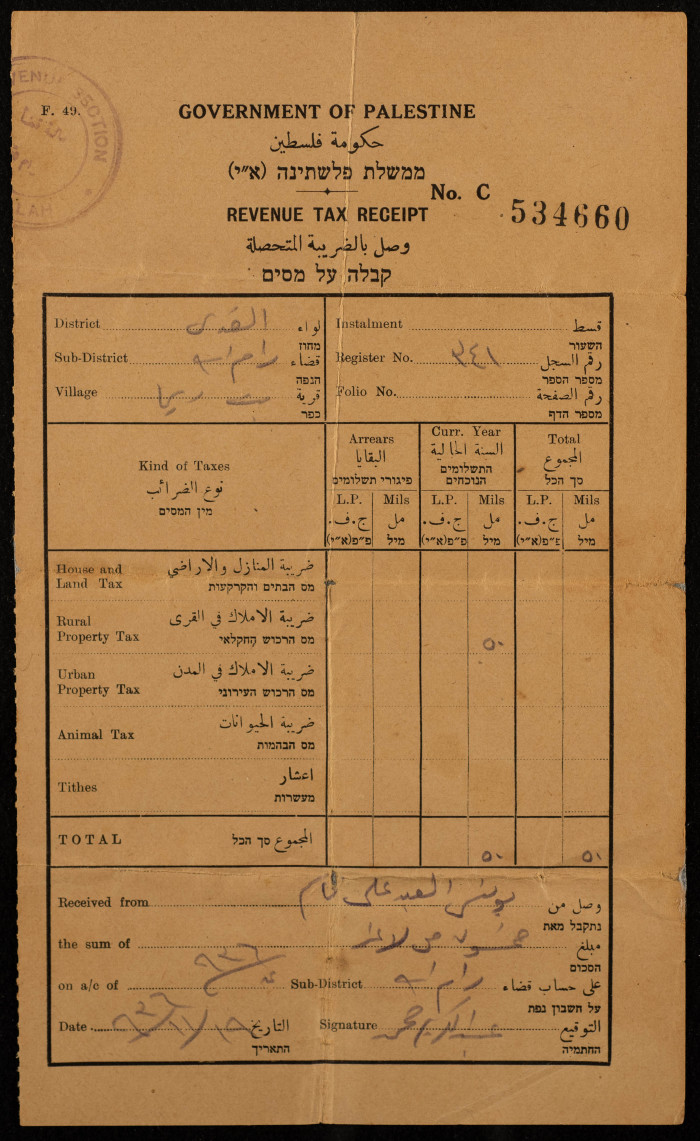 F. 49.
GOVERNMENT OF PALESTINE
حكومة فلسطين
ממשלת פלשתינה (א״י)
No. C 534660
REVENUE TAX RECEIPT
وصل بالضريبة المتحصلة
קבלה על מסים
District القدس لواء
מחוז
Sub-District رام الله قضاء
הנפה
Village قرية
כפר
Instalment قسط
השעור
Register No. ٣٤١ رقم السجل
מספר הספר
Folio No. رقم الصفحة
מספר הדף
Kind of Taxes
نوع الضرائب
מין המסים
Arrears
البقايا
פיגורי תשלומים
Curr. Year
السنة الحالية
התשלומים
הנוכחים
Total
المجموع
סך הכל
L.P. Mils L.P. Mils L.P. Mils
ج.ف. مل ج.ف. مل ج.ف. مل
פ״פ(א״י) מיל פ״פ(א״י) מיל פ״פ(א״י) מיל
House and
Land Tax
ضريبة المنازل والاراضي
מס הבתים והקרקעות
Rural
Property Tax
ضريبة الاملاك في القرى
מס הרכוש החקלאי
٥٠
Urban
Property Tax
ضريبة الاملاك في المدن
מס הרכוש העירוני
Animal Tax
ضريبة الحيوانات
מס הבהמות
Tithes
اعشار
מעשרות
TOTAL المجموع סך הכל ٥٠ ٥٠
Received from وصل من
נתקבל מאת
the sum of مبلغ
הסכום
on a/c of ٩٣٦ Sub-District رام الله على حساب قضاء
על חשבון נפת
Date التاريخ Signature عبد الكريم التوقيع
התאריך החתמיה